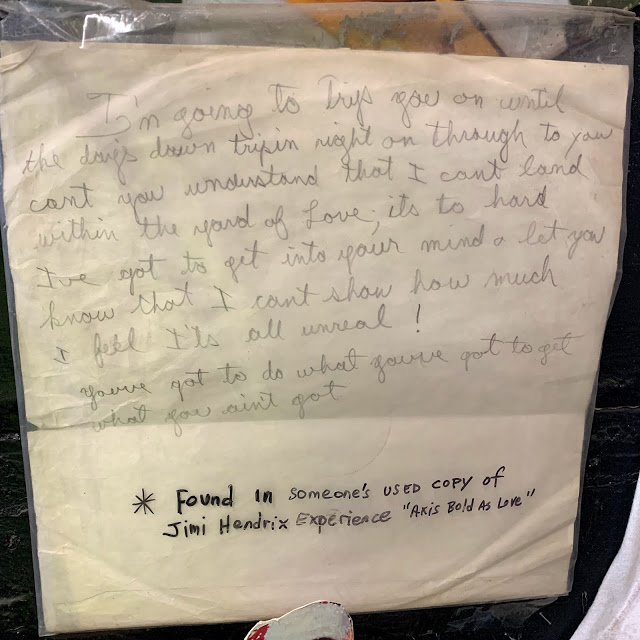 I'm going to Trip you on until
the days dawn tripin right on through to you
cant you understand that I cant land
within the yard of Love; its to hard
I've got to get into your mind & let you
know that I cant show how much
I feel I'ts all unreal !
youve got to do what youve got to get
what you aint got
* Found in someone's used copy of
Jimi Hendrix Experience "Axis Bold As Love"